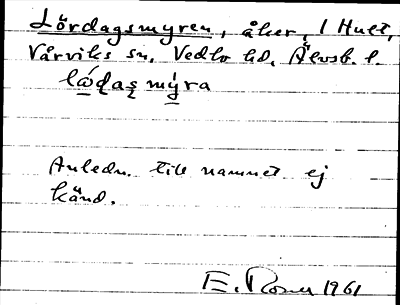 Lördagsmyren, åker, 1 Hult,
Vårviks sn, Vedbo hd, Älvsb. l.
Anledn. till namnet ej
känd.
E. Rosen 1961